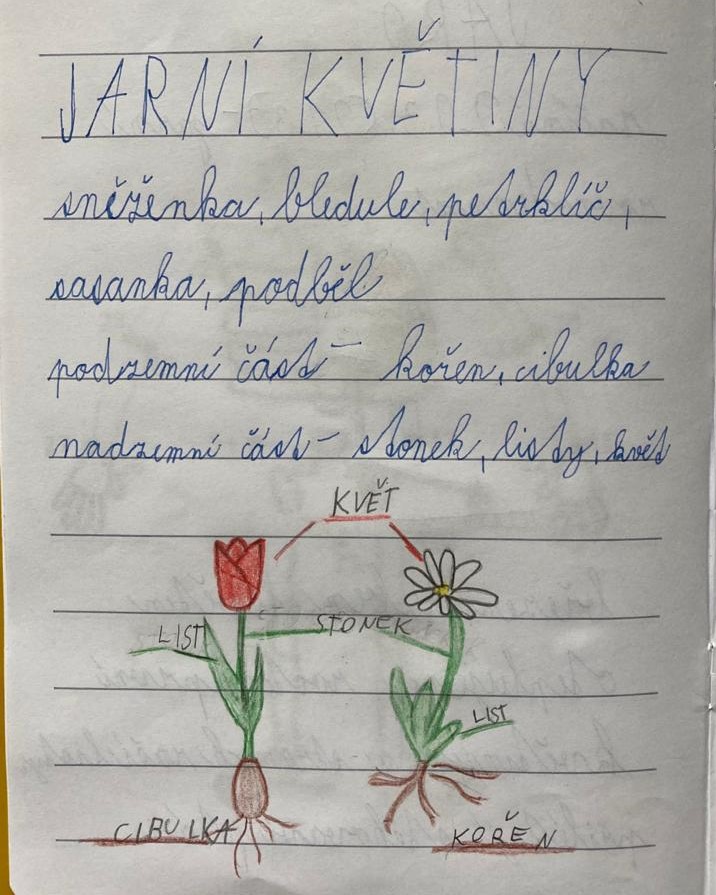 JARNÍ KVĚTINY
sněženka, bledule, petrklíč,
sasanka, podběl
podzemní část – kořen, cibulka
nadzemní část – stonek, listy, květ
KVĚT
LIST
STONEK
LIST
CIBULKA
KOŘEN